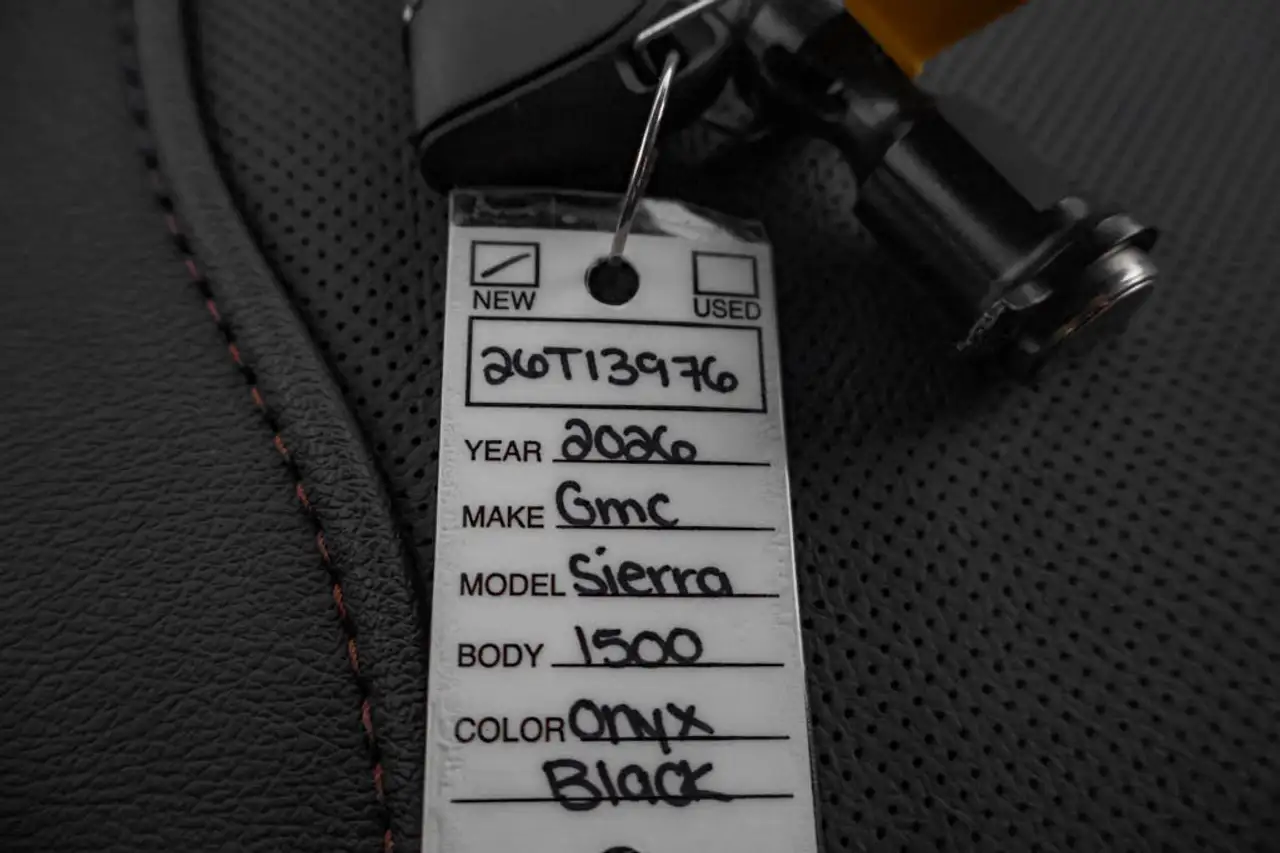 NEW USED
26T13976
YEAR 2026
MAKE Gmc
MODEL Sierra
BODY 1500
COLOR Onyx
Black